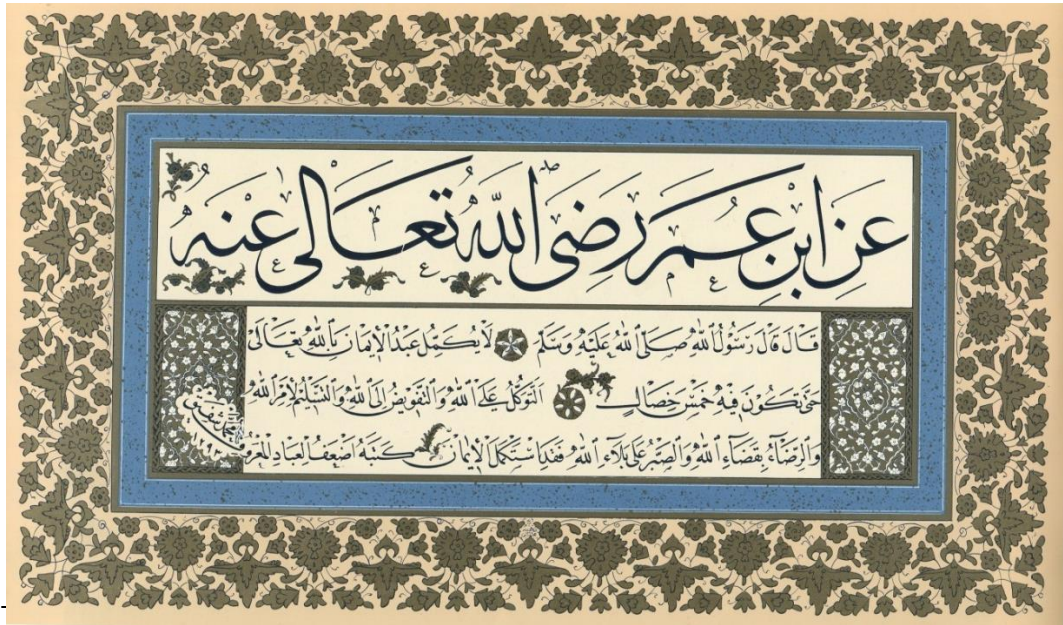 عَنِ ابْنِ عُمَرَ رَضِيَ اللهُ تَعَالَى عَنْهُ
قَالَ قَالَ رَسُولُ ٱللهِ صَلَّى ٱللهُ عَلَيْهِ وَسَلَّمَ لَا يُكَمِّلُ عَبْدُ ٱلْإِيمَانِ بِٱللهِ تَعَالَى
حَتَّى يَكُونَ فِيهِ خَمْسُ خِصَالٍ اَلتَّوَكُّلُ عَلَى ٱللهِ وَٱلتَّفْوِيضُ إِلَى ٱللهِ وَٱلتَّسْلِيمُ لِأَمْرِ ٱللهِ
وَٱلرِّضَاءُ بِقَضَاءِ ٱللهِ وَٱلصَّبْرُ عَلَى بَلَاءِ ٱللهِ فَقَدِ ٱسْتَكْمَلَ ٱلْإِيمَانَ كَتَبَهُ اَضْعَفُ ٱلْعِبَادِ